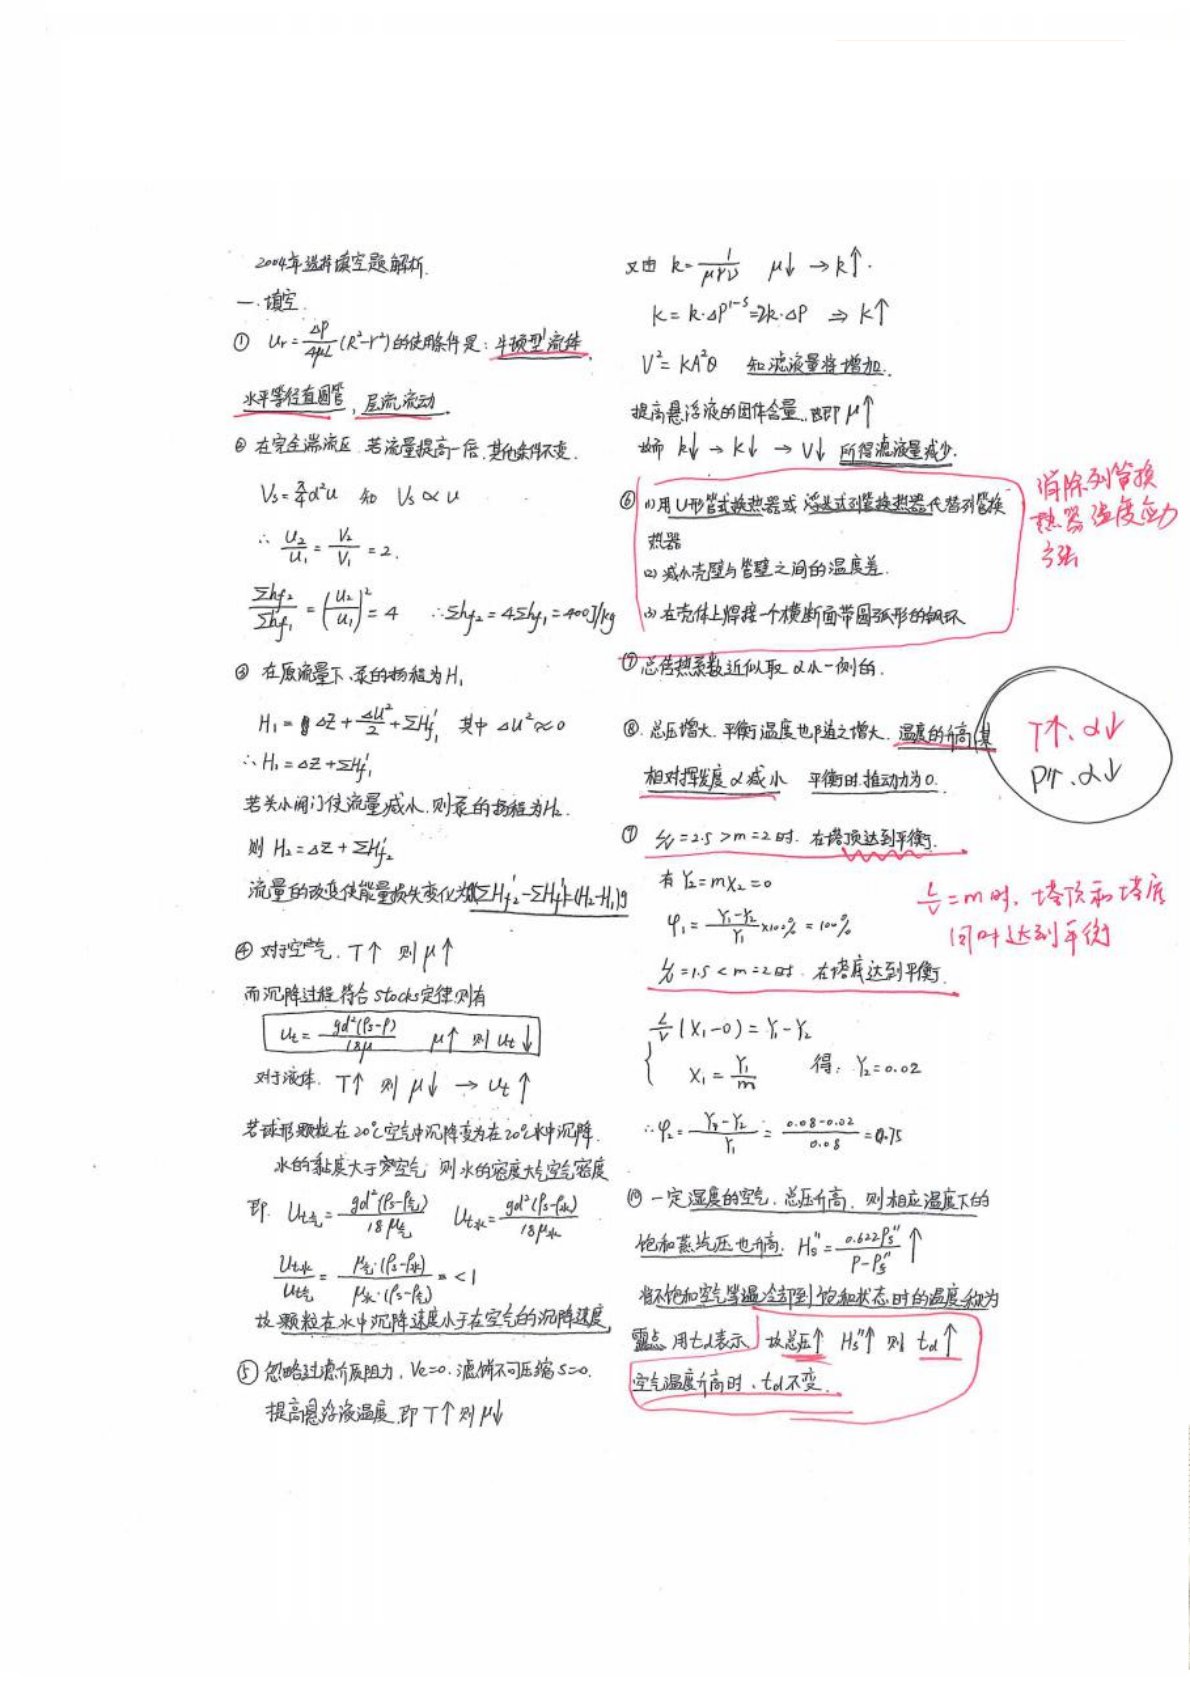 2004年选择填空题解析.
一.填空.
① Ur=ΔP/4μL(R²-r²)的使用条件是：牛顿型流体,
水平等径直圆管，层流流动.
② 在完全湍流区.若流量提高一倍.其他条件不变.
Vs=π/4d²u 知 Vs∝u
∴ U₂/U₁=V₂/V₁=2.
Σhf₂/Σhf₁=(U₂/U₁)²=4 ∴Σhf₂=4Σhf₁=400J/kg
③ 在原流量下、泵的扬程为H₁
H₁=ΔZ+ΔU²/2+ΣHf₁' 其中 ΔU²≈0
∴H₁=ΔZ+ΣHf₁'
若关小阀门使流量减小.则泵的扬程为H₂.
则 H₂=ΔZ+ΣHf₂'
流量的改变使能量损失变化为(ΣHf₂'-ΣHf₁')=(H₂-H₁)g
④ 对于空气. T↑ 则μ↑
而沉降过程符合Stocks定律.则有
Ut=gd²(ρs-ρ)/18μ μ↑ 则Ut↓
对于液体. T↑ 则μ↓ → Ut↑
若球形颗粒在20℃空气中沉降变为在20℃水中沉降.
水的黏度大于空气 则水的密度大于空气密度
即. Ut气=gd²(ρs-ρ气)/18μ气 Ut水=gd²(ρs-ρ水)/18μ水
Ut水/Ut气=μ气·(ρs-ρ水)/μ水·(ρs-ρ气)=<1
故颗粒在水中沉降速度小于在空气的沉降速度,
⑤ 忽略过滤介质阻力, Ve=0.滤饼不可压缩S=0.
提高悬浮液温度.即T↑则μ↓
又由 k=1/μrν μ↓ →k↑.
K=k·ΔP¹⁻ˢ=2k·ΔP ⇒ K↑
V²=KA²θ 知滤液量将增加.
提高悬浮液的固体含量.即μ↑
故而 k↓→K↓ →V↓ 所得滤液量减少.
⑥ (1)用U形管式换热器或浮头式列管换热器代替列管换
热器
(2)减小壳壁与管壁之间的温度差.
(3)在壳体上焊接一个横断面带圆弧形的钢环
消除列管换
热器温度应力
方法
⑦ 总传热系数近似取α小一侧的.
⑧.总压增大.平衡温度也随之增大.温度的升高(某
相对挥发度α减小 平衡时.推动力为0.
T↑.α↓
P↑.α↓
⑦ L/V=2.5>m=2时.在塔顶达到平衡.
有Y₂=mX₂=0
φ₁=Y₁-Y₂/Y₁×100%=100%
L/V=1.5<m=2时.在塔底达到平衡.
L/V=m时,塔顶和塔底
同时达到平衡
L/V(X₁-0)=Y₁-Y₂
X₁=Y₁/m 得: Y₂=0.02
∴φ₂=Y₁-Y₂/Y₁=0.08-0.02/0.08=0.75
⑩ 一定湿度的空气.总压升高.则相应温度下的
饱和蒸汽压也升高. Hs"=0.622Ps"/P-Ps"↑
将不饱和空气等温冷却到饱和状态时的温度称为
露点.用td表示. 故总压↑ Hs"↑ 则 td↑
空气温度升高时.td不变.